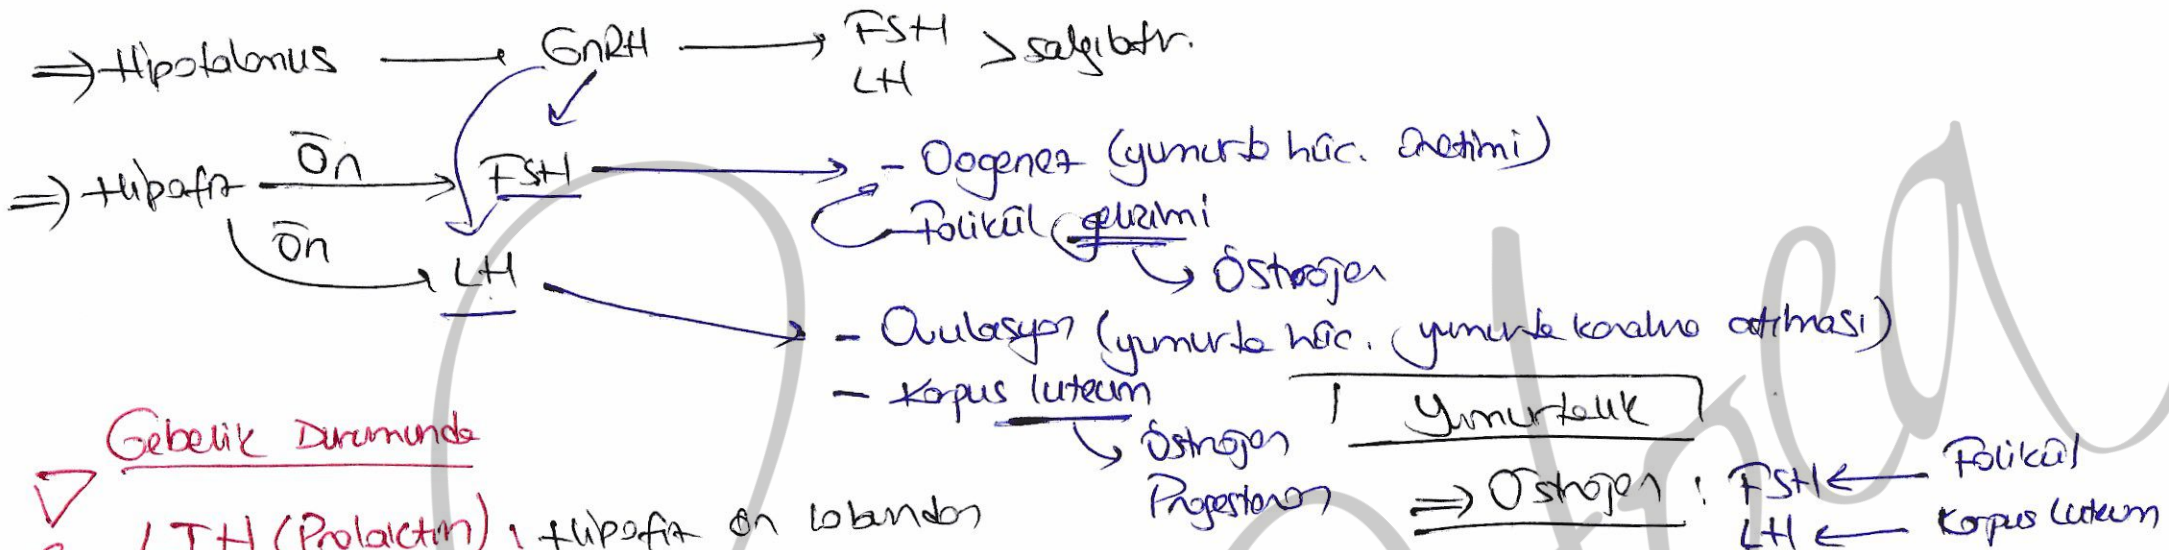 ⇒ Hipotalamus → GnRH → FSH
LH > salgılatır.
⇒ Hipofiz Ön → FSH → - Oogenez (yumurta hüc. üretimi)
Folikül gelişimi
→ Östrojen
Ön → LH
- Ovulasyon (yumurta hüc. yumurta kanalına atılması)
- Korpus luteum
→ Östrojen
Progesteron
Yumurtalık
⇒ Östrojen : FSH ← Folikül
LH ← Korpus luteum
Gebelik Durumunda
LTH (Prolaktin) : Hipofiz ön lobundan